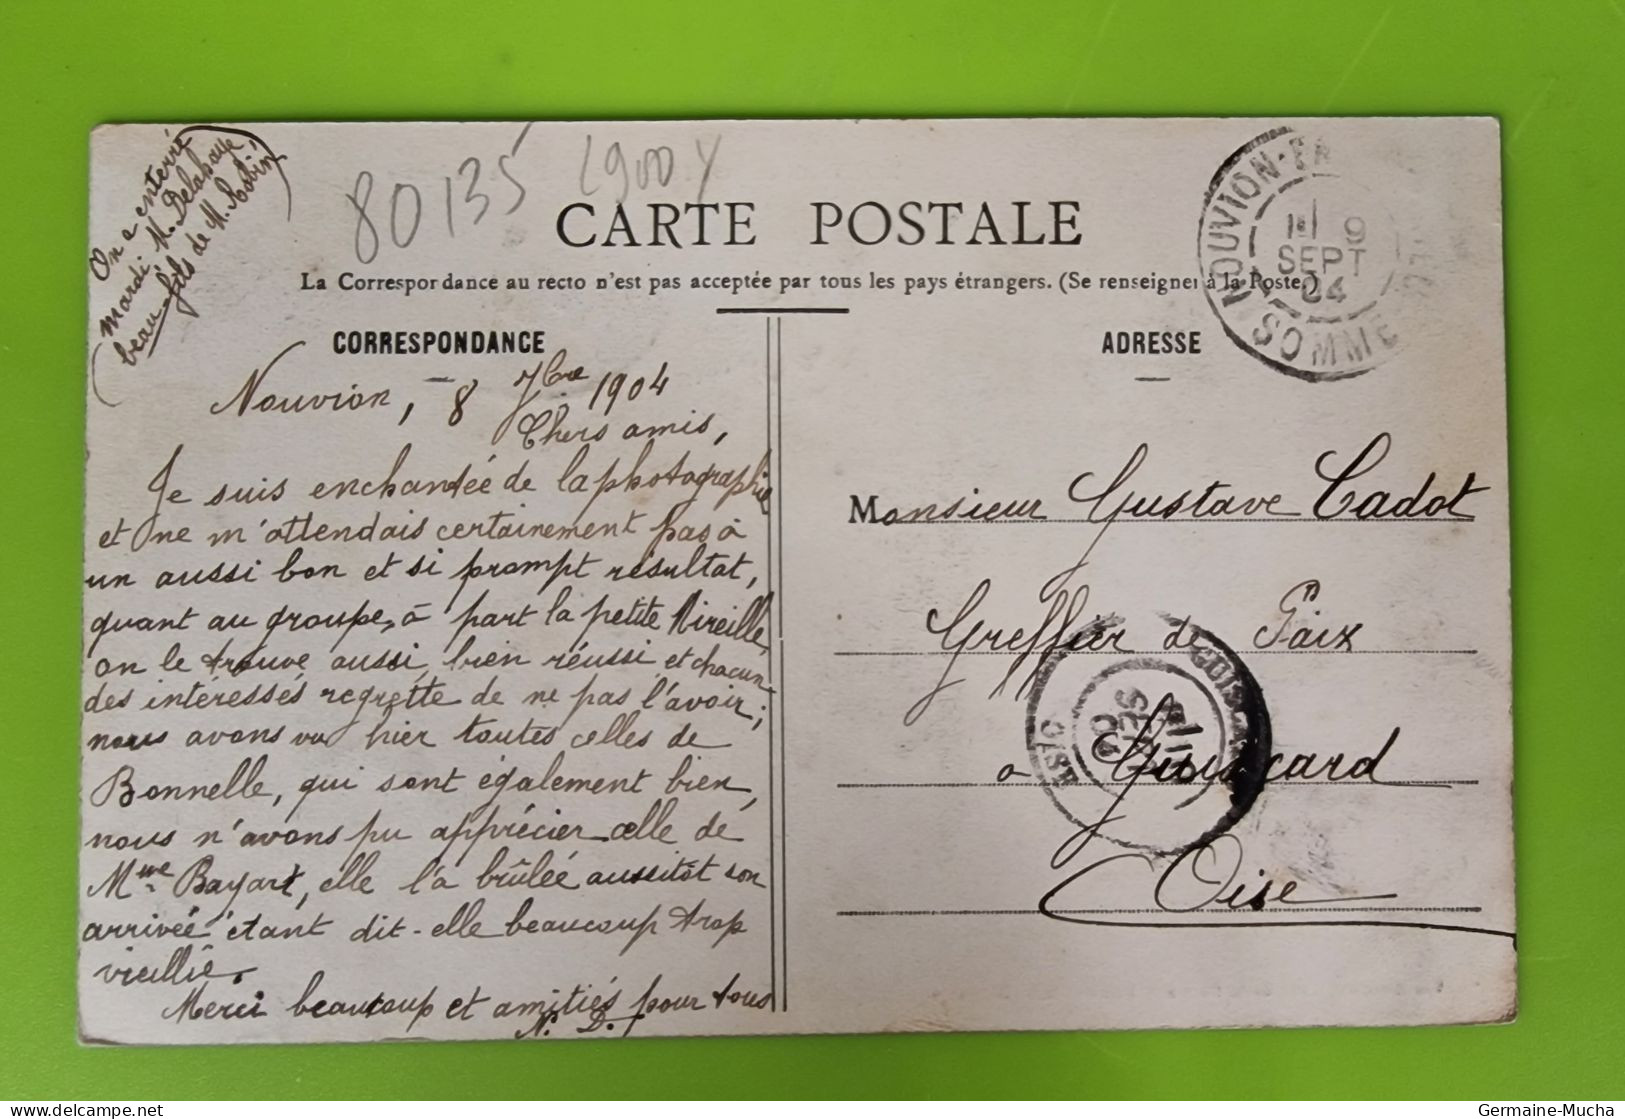 On a enterré
mardi M. Delahaye,
beau-fils de M. Robin
80135
CARTE POSTALE
La Correspondance au recto n'est pas acceptée par tous les pays étrangers. (Se renseigner à la Poste.)
NOUVION-
9
SEPT
04
SOMME
CORRESPONDANCE
Nouvion, 8 7bre 1904
Chers amis,
Je suis enchantée de la photographie
et ne m'attendais certainement pas à
un aussi bon et si prompt résultat,
quant au groupe, à part la petite Mireille,
on le trouve aussi bien réussi et chacun
des intéressés regrette de ne pas l'avoir;
nous avons vu hier toutes celles de
Bonnelle, qui sont également bien,
nous n'avons pu apprécier celle de
Mme Bayart, elle l'a brûlée aussitôt son
arrivée étant dit-elle beaucoup trop
vieillie.
Merci beaucoup et amitiés pour tous
N. D.
ADRESSE
Monsieur Gustave Cadot
Greffier de Paix
à Guiscard
Oise
OISE
SEPT
04
Germaine-Mucha